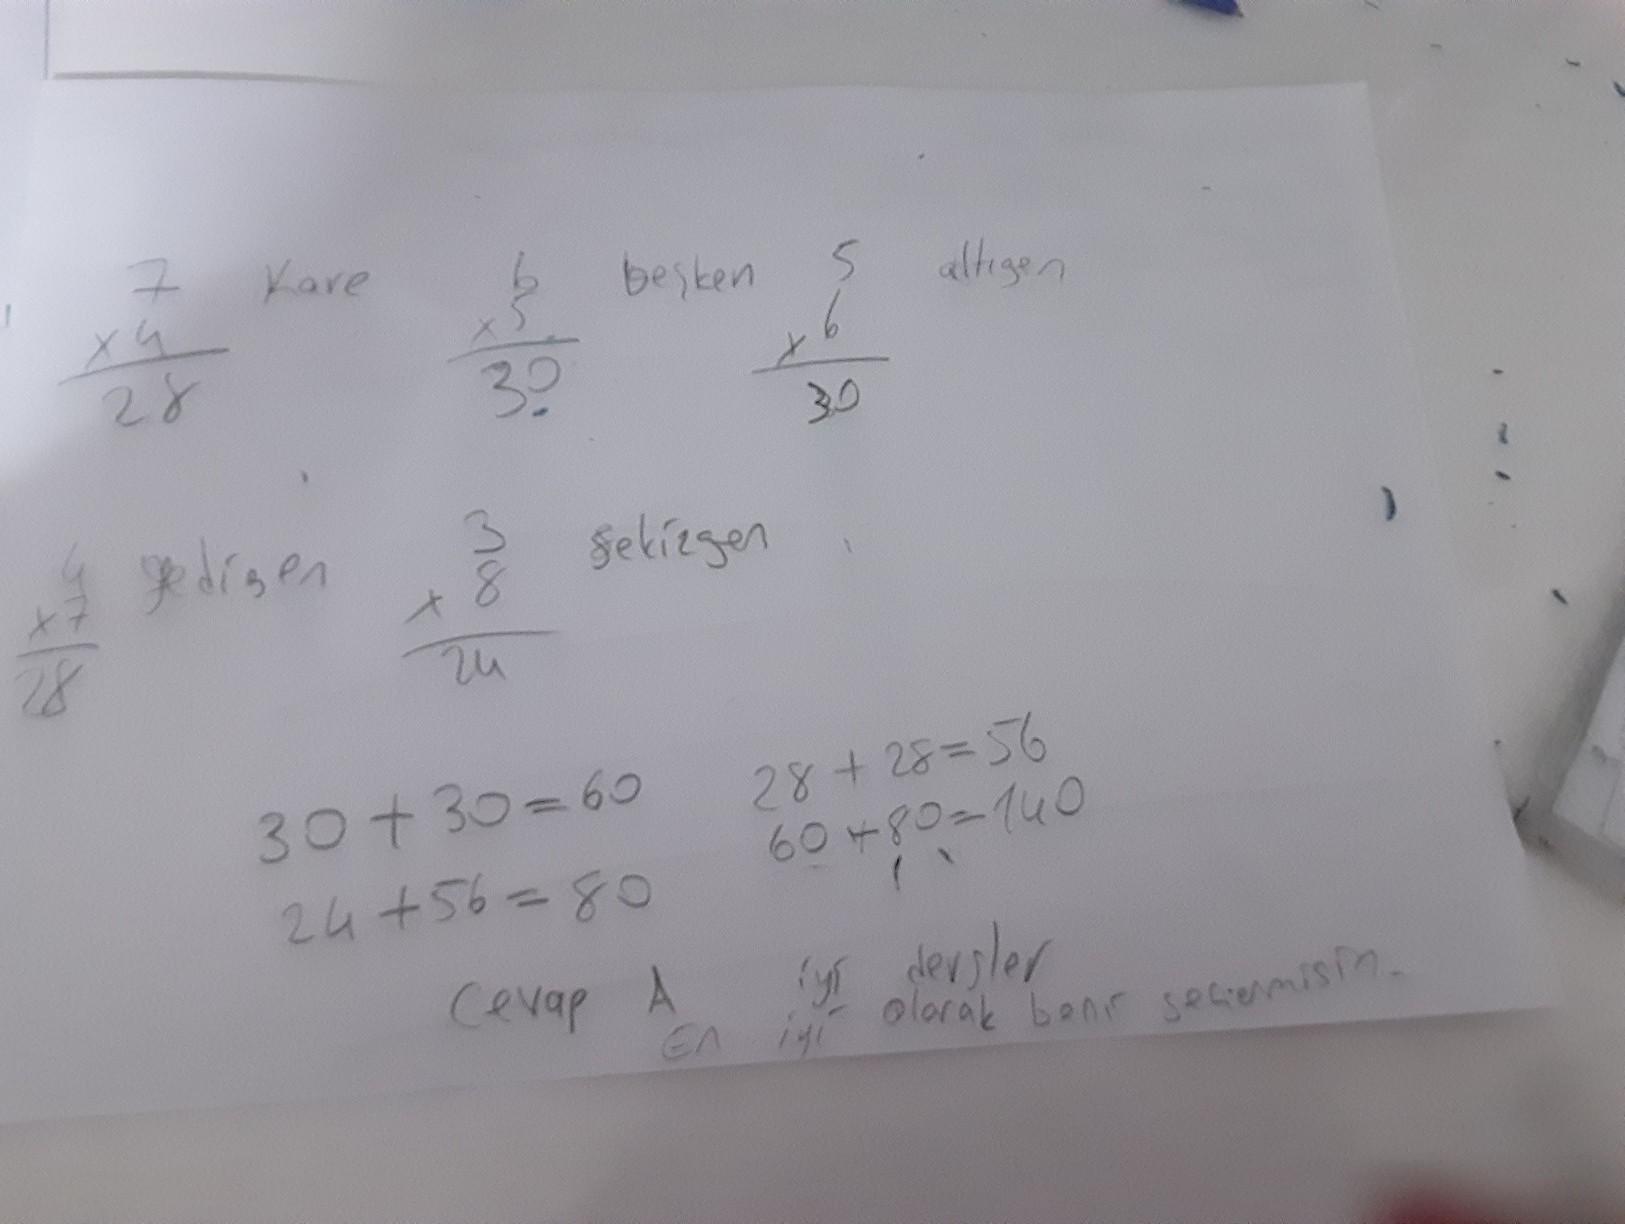 7 Kare 6 beşken 5 altıgen
x4 x5 x 6
28 30 30
4 yedigen 3 sekizgen
x7 x 8
28 24
30 + 30 = 60 28 + 28 = 56
24 + 56 = 80 60 + 80 = 140
Cevap A iyi dersler
En iyi olarak beni seçermisin.